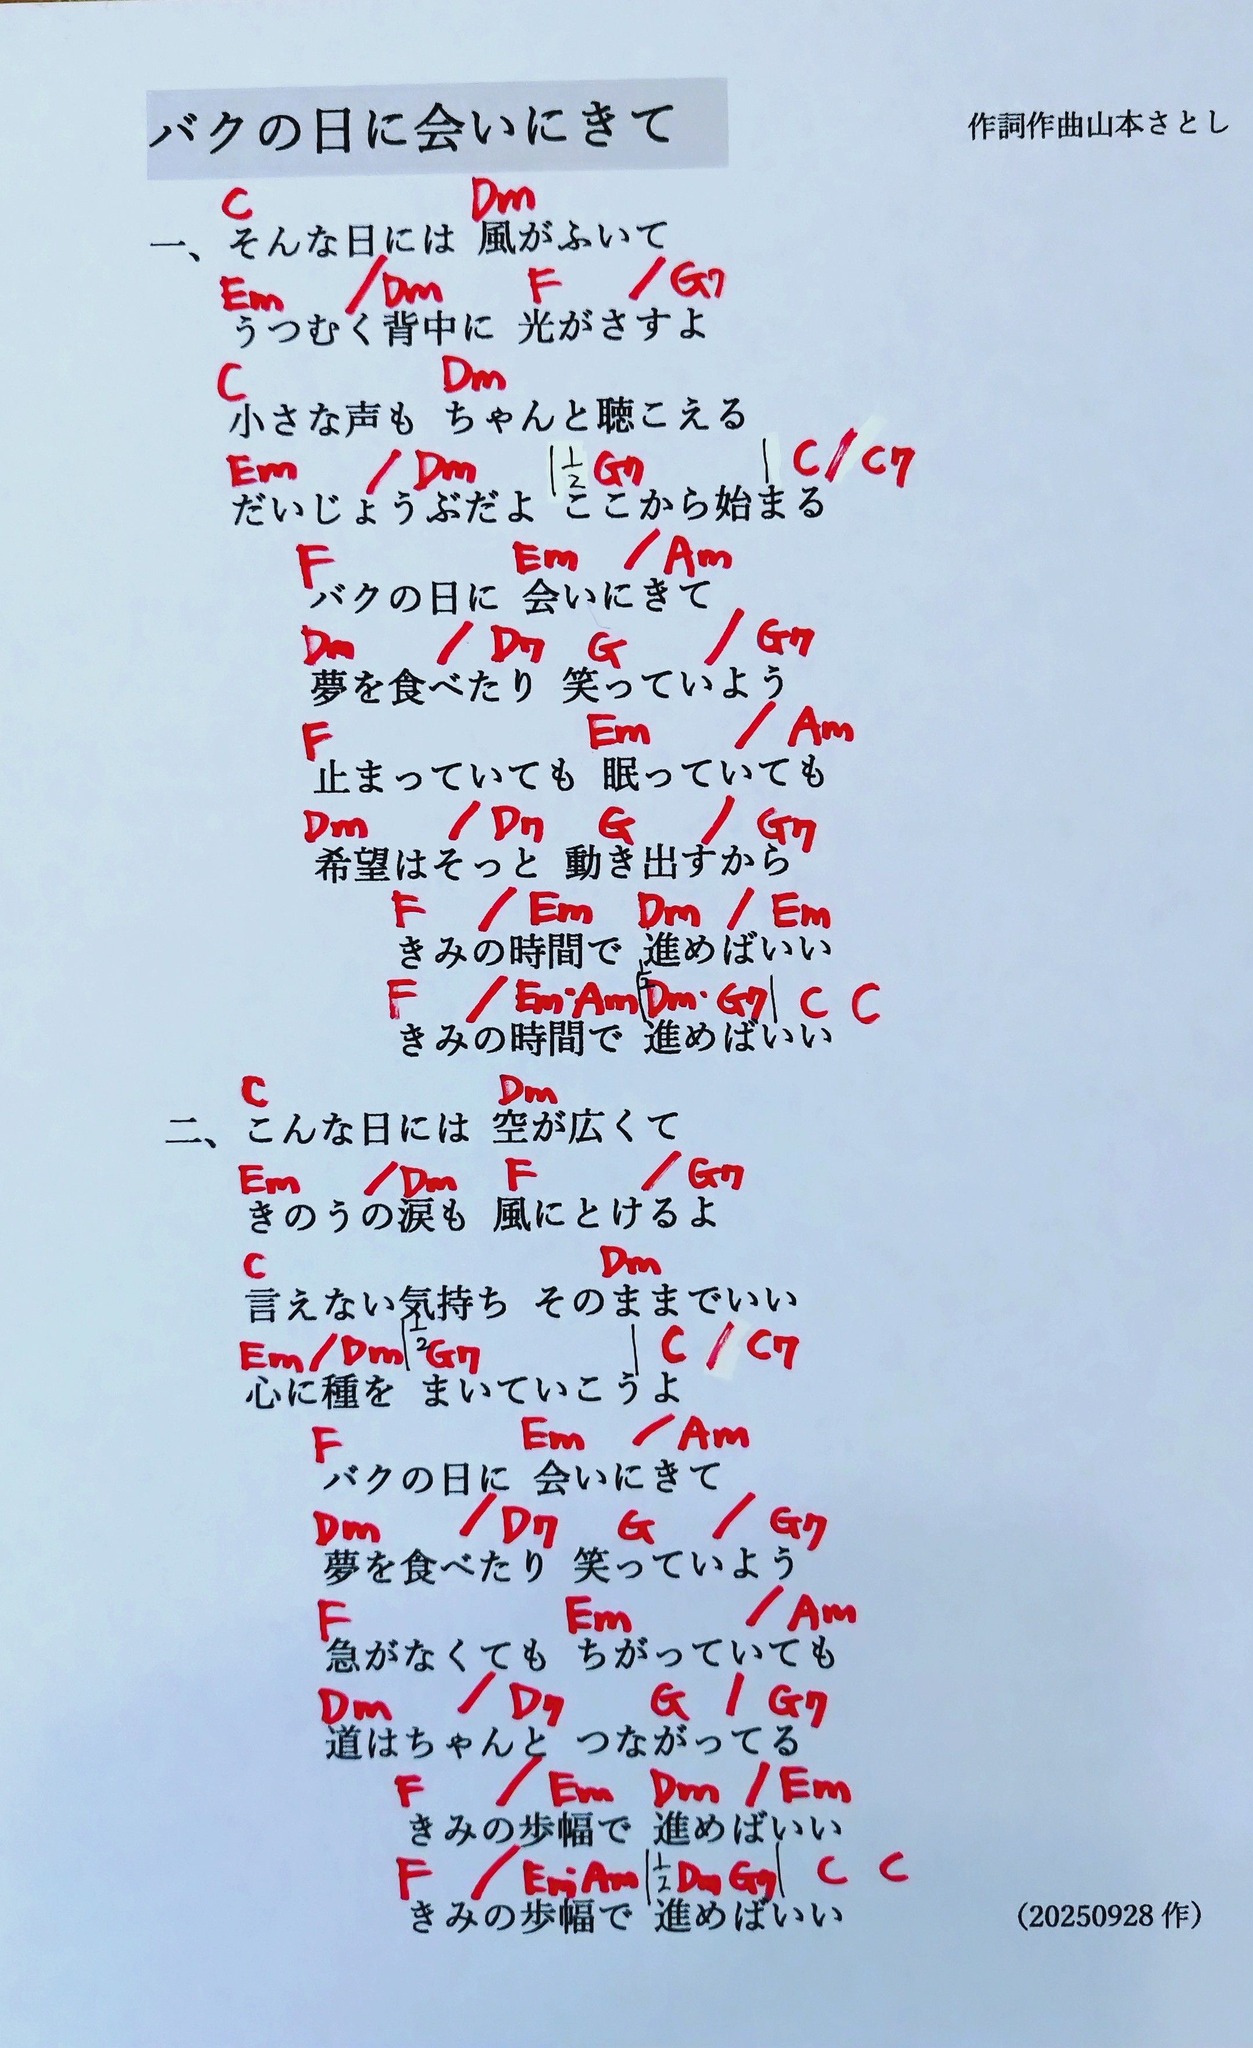 バクの日に会いにきて
作詞作曲山本さとし
C Dm
一、そんな日には 風がふいて
Em /Dm F /G7
うつむく背中に 光がさすよ
C Dm
小さな声も ちゃんと聴こえる
Em / Dm |1/2 G7 | C / C7
だいじょうぶだよ ここから始まる
F Em / Am
バクの日に 会いにきて
Dm / D7 G / G7
夢を食べたり 笑っていよう
F Em / Am
止まっていても 眠っていても
Dm / D7 G / G7
希望はそっと 動き出すから
F / Em Dm / Em
きみの時間で 進めばいい
F / Em・Am |1/2 Dm・G7 | C C
きみの時間で 進めばいい
C Dm
二、こんな日には 空が広くて
Em /Dm F /G7
きのうの涙も 風にとけるよ
C Dm
言えない気持ち そのままでいい
Em / Dm |1/2 G7 | C / C7
心に種を まいていこうよ
F Em / Am
バクの日に 会いにきて
Dm / D7 G / G7
夢を食べたり 笑っていよう
F Em / Am
急がなくても ちがっていても
Dm / D7 G / G7
道はちゃんと つながってる
F / Em Dm / Em
きみの歩幅で 進めばいい
F / Em・Am |1/2 Dm G7 | C C
きみの歩幅で 進めばいい
（20250928 作）